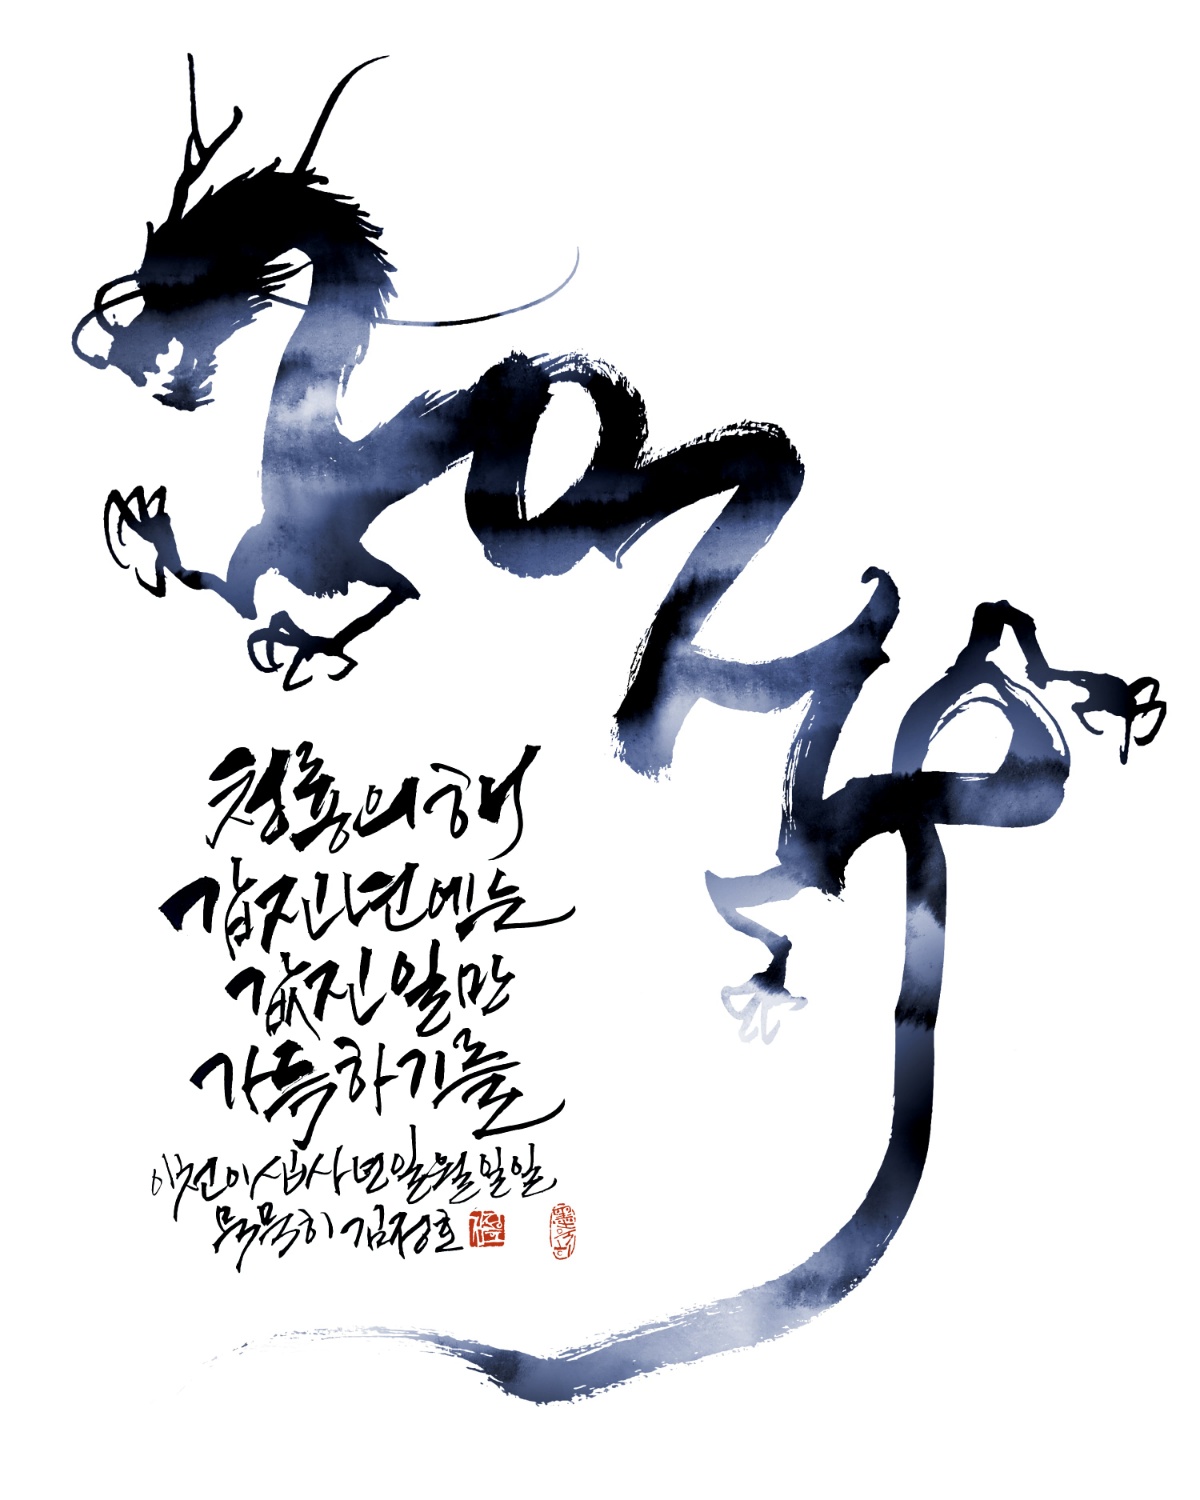 청룡의 해
갑진년에는
값진 일만
가득하기를
이천이십사년 일월 일일
묵묵히 김정호